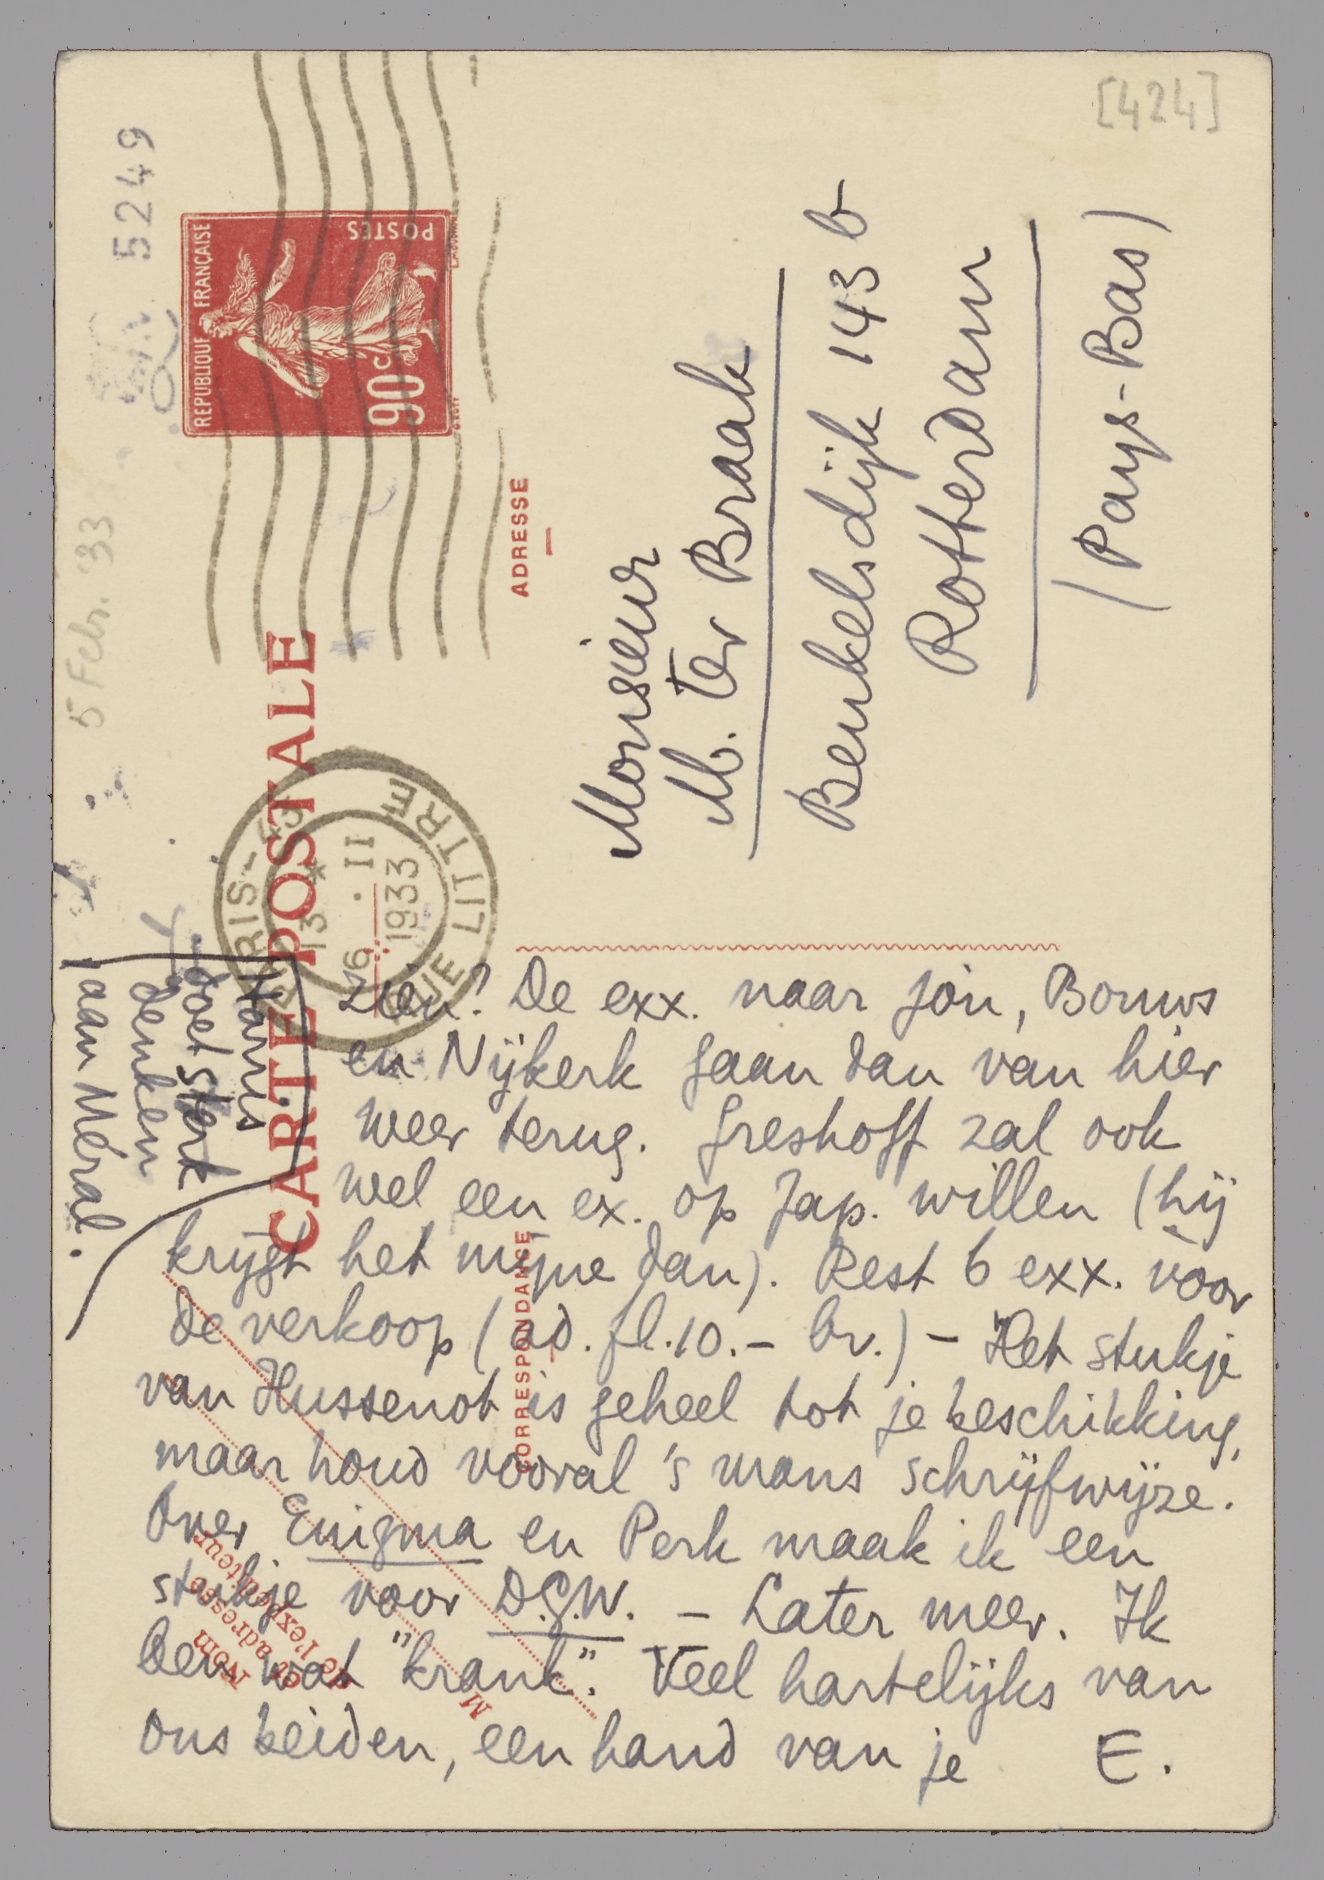 [424]
5249
5 Febr. '33
REPUBLIQUE FRANÇAISE
POSTES
90c
CARTE POSTALE
PARIS-43
13 *
6 . II
1933
RUE LITTRE
ADRESSE
Monsieur
M. ter Braak
Beukelsdijk 143 b
Rotterdam
(Pays-Bas)
Harris
doet sterk
denken
aan Méral.
zien? De exx. naar jou, Bouws
en Nijkerk gaan dan van hier
weer terug. Greshoff zal ook
wel een ex. op Jap. willen (hij
krijgt het mijne dan). Rest 6 exx. voor
de verkoop (ad. fl. 10.– br.) – Het stukje
van Hussenot is geheel tot je beschikking,
maar houd vooral 's mans schrijfwijze.
Over Enigma en Perk maak ik een
stukje voor D.G.W. – Later meer. Ik
ben wat "krank". Veel hartelijks van
ons beiden, een hand van je E.
CORRESPONDANCE
Nom
et adresse
de l'expéditeur
M